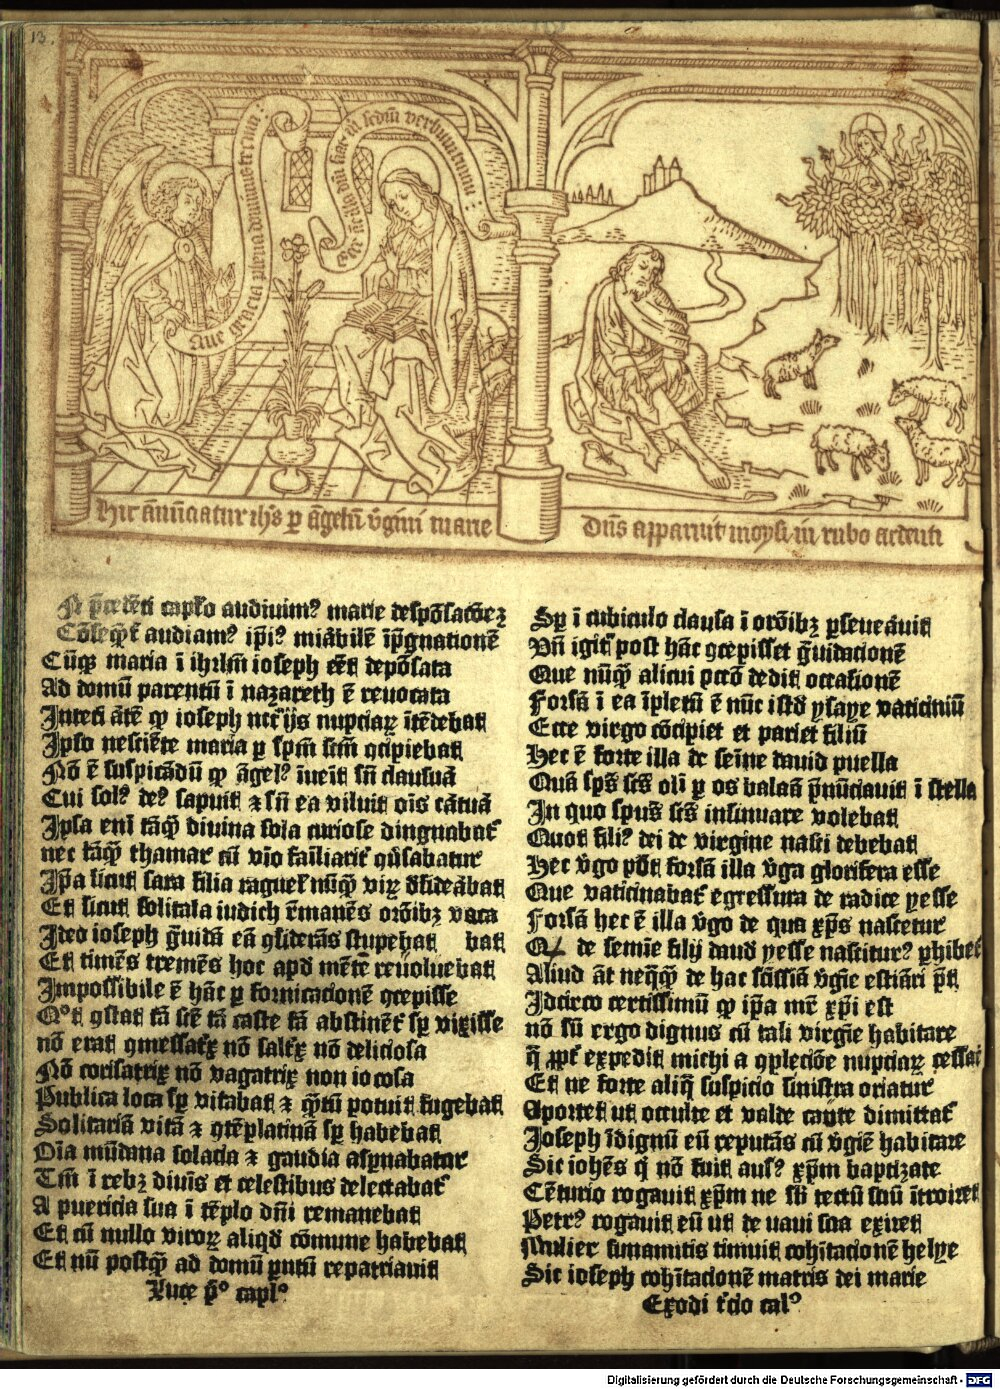 13.
Aue gracia plena dominus tecum
Ecce ancilla dñi fiat m̄ scdm̄ verbum tuum
Hic añũciatur ih̄s p̄ ãgelũ v̄gini marie
Dñs apparuit moysi in rubo ardenti
N p̄cedẽti capłō audiuim⁹ marie despõsacõeꝫ
Cõseq̃t̃ audiam⁹ ip̄i⁹ mirãbilẽ ĩp̄gnationẽ
Cũqꝫ maria ĩ ihrłm̃ ioseph eẽt depõsata
Ad domũ parentũ ĩ nazareth ẽ reuocata
Interi ãtẽ ꝙ ioseph nccrĩjs nupciaꝝ ĩtẽdebat
Ipso nesciẽte maria p̱ sp̄m sc̄m ɔcipiebat
Nõ ẽ suspicãdũ ꝙ ãgel⁹ ĩueĩt sñ clausuã
Cui sol⁹ de⁹ sapuit ⁊ sñ ea viluit oĩs cãtuã
Ipsa enĩ tãꝙ̃ diuina sola curiose dingnabat̃
nec tãꝙ̃ thamar cũ vĩo faĩliarit̃ ɔũsabatur
Ip̄a sicut sara filia raguel̃ nũꝙ̃ viꝝ ɔ̃sideãbat
Et sicut solitaĩa iudich r̃manẽs orõibꝫ vaca
Ideo ioseph g̃uidã eã ɔsiderãs stupebat bat
Et timẽs tremẽs hoc apd̃ mẽtẽ reũoluebat
Impossibile ẽ hãc p̱ fornicacionẽ ɔcepisse
Q̃ ɔstat tã scẽ tã caste tã abstinẽt̃ sp̱ vixisse
nõ erat ɔmessat̃x nõ salt̃x nõ deliciosa
Nõ corisatrix nõ vagatrix non iocosa
Publica loca sp̱ vitabat ⁊ ꝙ̃tũ potuit fugebat
Solitariã vitã ⁊ ɔtẽplatiuã sp̱ habebat
Oĩa mũdana solacia ⁊ gaudia asp̱nabatur
Tm̃ ĩ rebꝫ diuĩs et celestibus delectabat̃
A puericia sua ĩ tẽplo dñi remanebat
Et cũ nullo viroꝝ aliqd̃ cõmune habebat
Et nũ postꝙ̃ ad domũ p̱ntũ repatriauit
Luce p̃º capłº
Sp̱ ĩ cubiculo clausa ĩ orõibꝫ p̱seueãuit
Vñ igit̃ post hãc ɔcepisset g̃uidacionẽ
Que nũꝙ̃ alicui pccõ dedit occasionẽ
Forsã ĩ ea ĩpletũ ẽ nũc istd̃ ysaye vaticiniũ
Ecce virgo cõcipiet et pariet filiũ
Hec ẽ forte illa de seĩne dauid puella
Quã sp̄s scs̃ olĩ p̱ os balaã p̃nũciauit ĩ stella
In quo spũs scs̃ insinuare volebat
Quot fili⁹ dei de virgine nasci debebat
Hec v̄go põt forsã illa v̄ga glorifera esse
Que vaticinabat̃ egressura de radice yesse
Forsã hec ẽ illa v̄go de qua xp̄s nascetur
Q⁊ de semĩe filij dauid yesse nascitur⁹ p̱hibet̃
Aliud ãt neqꝙ̃ de hac scĩssiã v̄gĩe estiãri p̃t
Idcirco certissimũ ꝙ ip̄a mr̃ xp̃i est
nõ sũ ergo dignus cũ tali virgĩe habitare
q̃ ꝓpt̃ expedit michi a ɔplecĩõe nupciaꝝ cessar̃
Et ne forte aliq̃ suspicio sinistra oriatur
Oportet ut occulte et valde caute dimittat̃
Joseph ĩdignũ eũ reputãs cũ v̄gĩe habitare
Sic ioh̃es q̃ nõ fuit aus⁹ xp̄m baptizate
Cẽturio rogauit xp̄m ne sb̃ tectũ suũ ĩtroiret
Petr⁹ rogauit eũ ut de naui sua exiret
Mulier sunamitis timuit cohĩtacionẽ helye
Sic ioseph cohĩtacionẽ matris dei marie
Exodi t̃cio caº
Digitalisierung gefördert durch die Deutsche Forschungsgemeinschaft - DFG